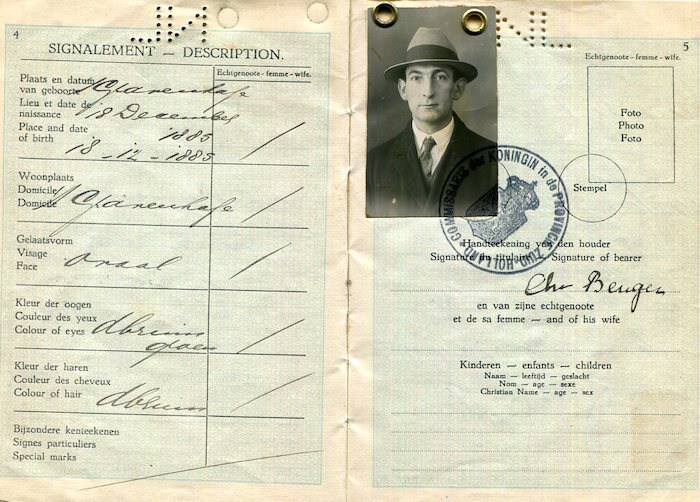 4
SIGNALEMENT — DESCRIPTION.
Echtgenoote - femme - wife.
Plaats en datum
van geboorte 's Gravenhage
Lieu et date de
naissance 18 December
Place and date 1885
of birth
18 - 12 - 1885
Woonplaats
Domicile
Domicile 's Gravenhage
Gelaatsvorm
Visage
Face ovaal
Kleur der oogen
Couleur des yeux
Colour of eyes
Kleur der haren
Couleur des cheveux
Colour of hair dbruin
Bijzondere kenteekenen
Signes particuliers
Special marks
5
Echtgenoote - femme - wife.
Foto
Photo
Foto
Stempel
COMMISSARIS der KONINGIN in de PROVINCIE ZUID-HOLLAND
Handteekening van den houder
Signature du titulaire — Signature of bearer
en van zijne echtgenoote
et de sa femme — and of his wife
Kinderen — enfants — children
Naam — leeftijd — geslacht
Nom — age — sexe
Christian Name — age — sex